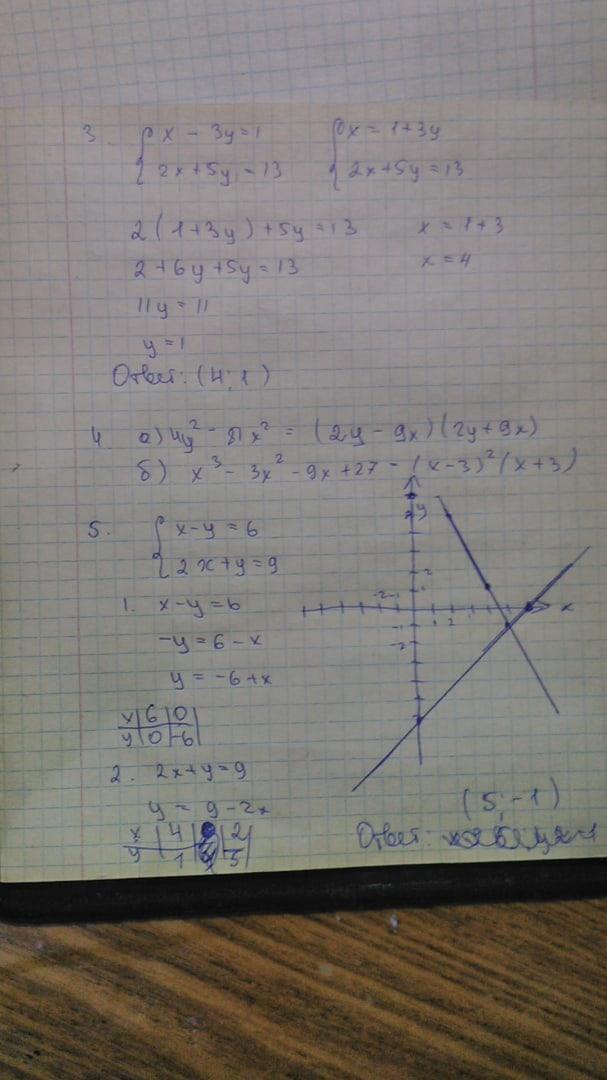 3. { x - 3y = 1 { x = 1+3y
2x+5y = 13 2x+5y = 13
2(1+3y)+5y = 13 x = 1+3
2+6y+5y = 13 x = 4
11y = 11
y = 1
Ответ: (4; 1)
4 а) 4y² - 81x² = (2y - 9x)(2y+9x)
б) x³ - 3x² - 9x + 27 - (x-3)²(x+3)
5. { x-y = 6
2x+y = 9
1. x-y = 6
-y = 6-x
y = -6+x
x | 6 | 0 |
y | 0 | -6 |
2. 2x+y = 9
y = 9-2x
x | 4 | 2 |
y | 1 | 5 |
y
2
-2 -1 1
1 2 x
-1
-2
(5; -1)
Ответ: